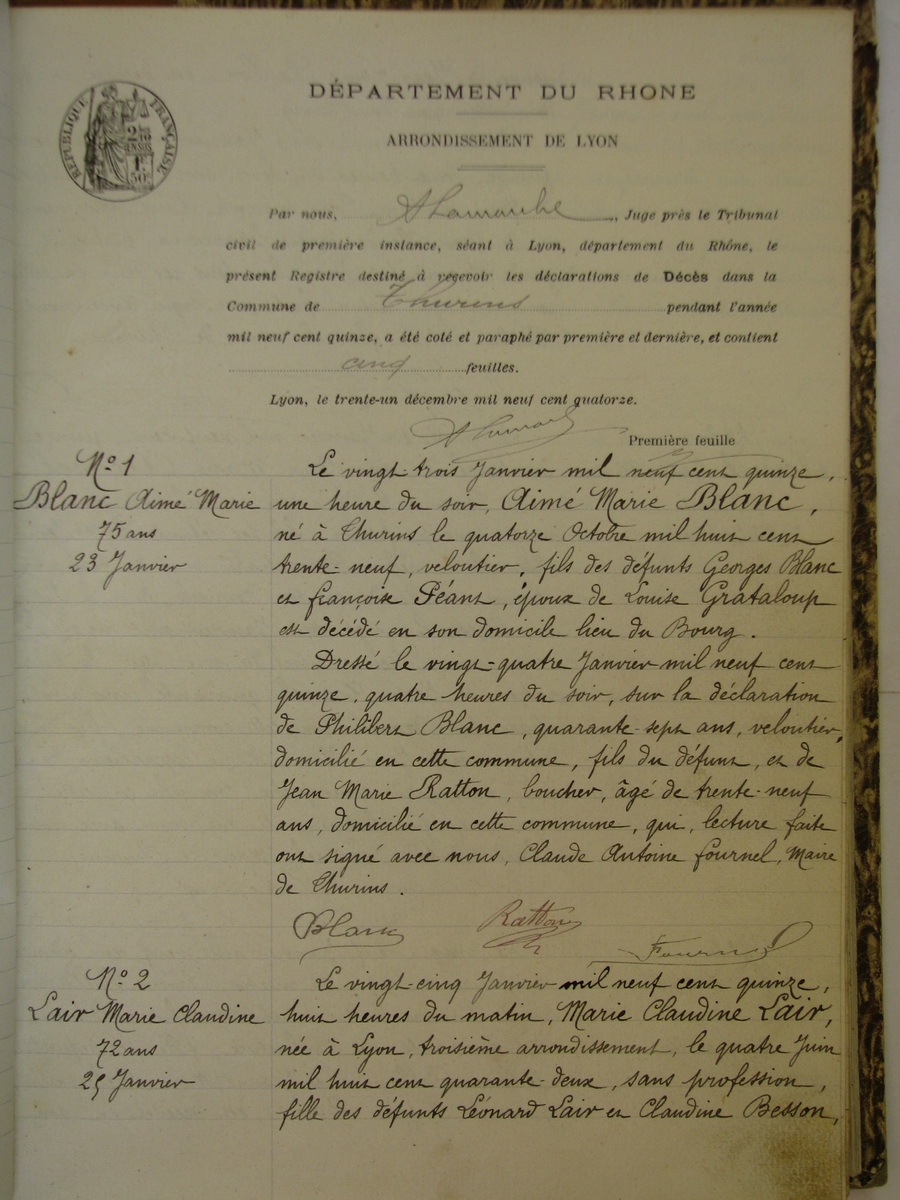 DÉPARTEMENT DU RHONE
ARRONDISSEMENT DE LYON
RÉPUBLIQUE FRANÇAISE
Par nous, , Juge près le Tribunal
civil de première instance, séant à Lyon, département du Rhône, le
présent Registre destiné à recevoir les déclarations de Décès dans la
Commune de Thurins pendant l'année
mil neuf cent quinze, a été coté et paraphé par première et dernière, et contient
cinq feuilles.
Lyon, le trente-un décembre mil neuf cent quatorze.
Première feuille
N° 1
Blanc Aimé Marie
75 ans
23 Janvier
Le vingt-trois Janvier mil neuf cent quinze,
une heure du soir, Aimé Marie Blanc,
né à Thurins le quatorze Octobre mil huit cent
trente-neuf, veloutier, fils des défunts Georges Blanc
et françoise Péant, époux de Louise Grataloup
est décédé en son domicile lieu du Bourg.
Dressé le vingt-quatre Janvier mil neuf cent
quinze, quatre heures du soir, sur la déclaration
de Philibert Blanc, quarante-sept ans, veloutier,
domicilié en cette commune, fils du défunt, et de
Jean Marie Ratton, boucher, âgé de trente-neuf
ans, domicilié en cette commune, qui, lecture faite
ont signé avec nous, Claude Antoine fournel, Maire
de Thurins.
Blanc Ratton Fournel
N° 2
Lair Marie Claudine
72 ans
25 Janvier
Le vingt-cinq Janvier mil neuf cent quinze,
huit heures du matin, Marie Claudine Lair,
née à Lyon, troisième arrondissement, le quatre Juin
mil huit cent quarante-deux, sans profession,
fille des défunts Léonard Lair et Claudine Besson,